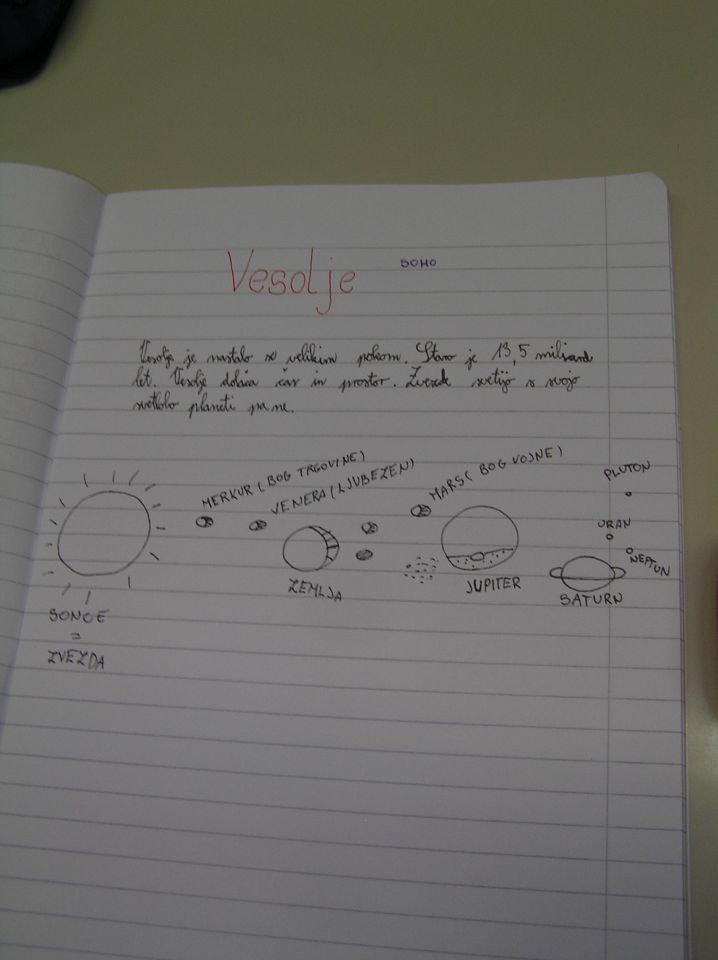 Vesolje
SOHO
Vesolje je nastalo z velikim pokom. Staro je 13,5 miliard
let. Vesolje določa čas in prostor. Zvezde svetijo s svojo
svetlobo planeti pa ne.
MERKUR (BOG TRGOVINE)
VENERA (LJUBEZEN)
MARS (BOG VOJNE)
PLUTON
URAN
NEPTUN
ZEMLJA
JUPITER
SATURN
SONCE
=
ZVEZDA